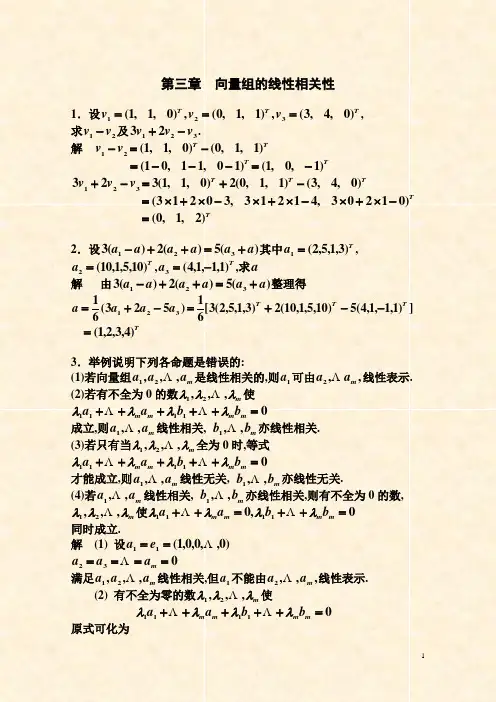 第三章 向量组的线性相关性
1．设v₁ = (1, 1, 0)ᵀ, v₂ = (0, 1, 1)ᵀ, v₃ = (3, 4, 0)ᵀ,
求v₁ − v₂及3v₁ + 2v₂ − v₃.
解 v₁ − v₂ = (1, 1, 0)ᵀ − (0, 1, 1)ᵀ
= (1−0, 1−1, 0−1)ᵀ = (1, 0, −1)ᵀ
3v₁ + 2v₂ − v₃ = 3(1, 1, 0)ᵀ + 2(0, 1, 1)ᵀ − (3, 4, 0)ᵀ
= (3×1+2×0−3, 3×1+2×1−4, 3×0+2×1−0)ᵀ
= (0, 1, 2)ᵀ
2．设3(a₁ − a) + 2(a₂ + a) = 5(a₃ + a)其中a₁ = (2,5,1,3)ᵀ,
a₂ = (10,1,5,10)ᵀ, a₃ = (4,1,−1,1)ᵀ,求a
解 由3(a₁ − a) + 2(a₂ + a) = 5(a₃ + a)整理得
a = 1/6(3a₁ + 2a₂ − 5a₃) = 1/6[3(2,5,1,3)ᵀ + 2(10,1,5,10)ᵀ − 5(4,1,−1,1)ᵀ]
= (1,2,3,4)ᵀ
3．举例说明下列各命题是错误的:
(1)若向量组a₁,a₂,Λ,aₘ是线性相关的,则a₁可由a₂,Λ aₘ,线性表示.
(2)若有不全为0的数λ₁,λ₂,Λ,λₘ使
λ₁a₁ + Λ + λₘaₘ + λ₁b₁ + Λ + λₘbₘ = 0
成立,则a₁,Λ,aₘ线性相关, b₁,Λ,bₘ亦线性相关.
(3)若只有当λ₁,λ₂,Λ,λₘ全为0时,等式
λ₁a₁ + Λ + λₘaₘ + λ₁b₁ + Λ + λₘbₘ = 0
才能成立,则a₁,Λ,aₘ线性无关, b₁,Λ,bₘ亦线性无关.
(4)若a₁,Λ,aₘ线性相关, b₁,Λ,bₘ亦线性相关,则有不全为0的数,
λ₁,λ₂,Λ,λₘ使λ₁a₁ + Λ + λₘaₘ = 0,λ₁b₁ + Λ + λₘbₘ = 0
同时成立.
解 (1) 设a₁ = e₁ = (1,0,0,Λ,0)
a₂ = a₃ = Λ = aₘ = 0
满足a₁,a₂,Λ,aₘ线性相关,但a₁不能由a₂,Λ,aₘ,线性表示.
(2) 有不全为零的数λ₁,λ₂,Λ,λₘ使
λ₁a₁ + Λ + λₘaₘ + λ₁b₁ + Λ + λₘbₘ = 0
原式可化为
1